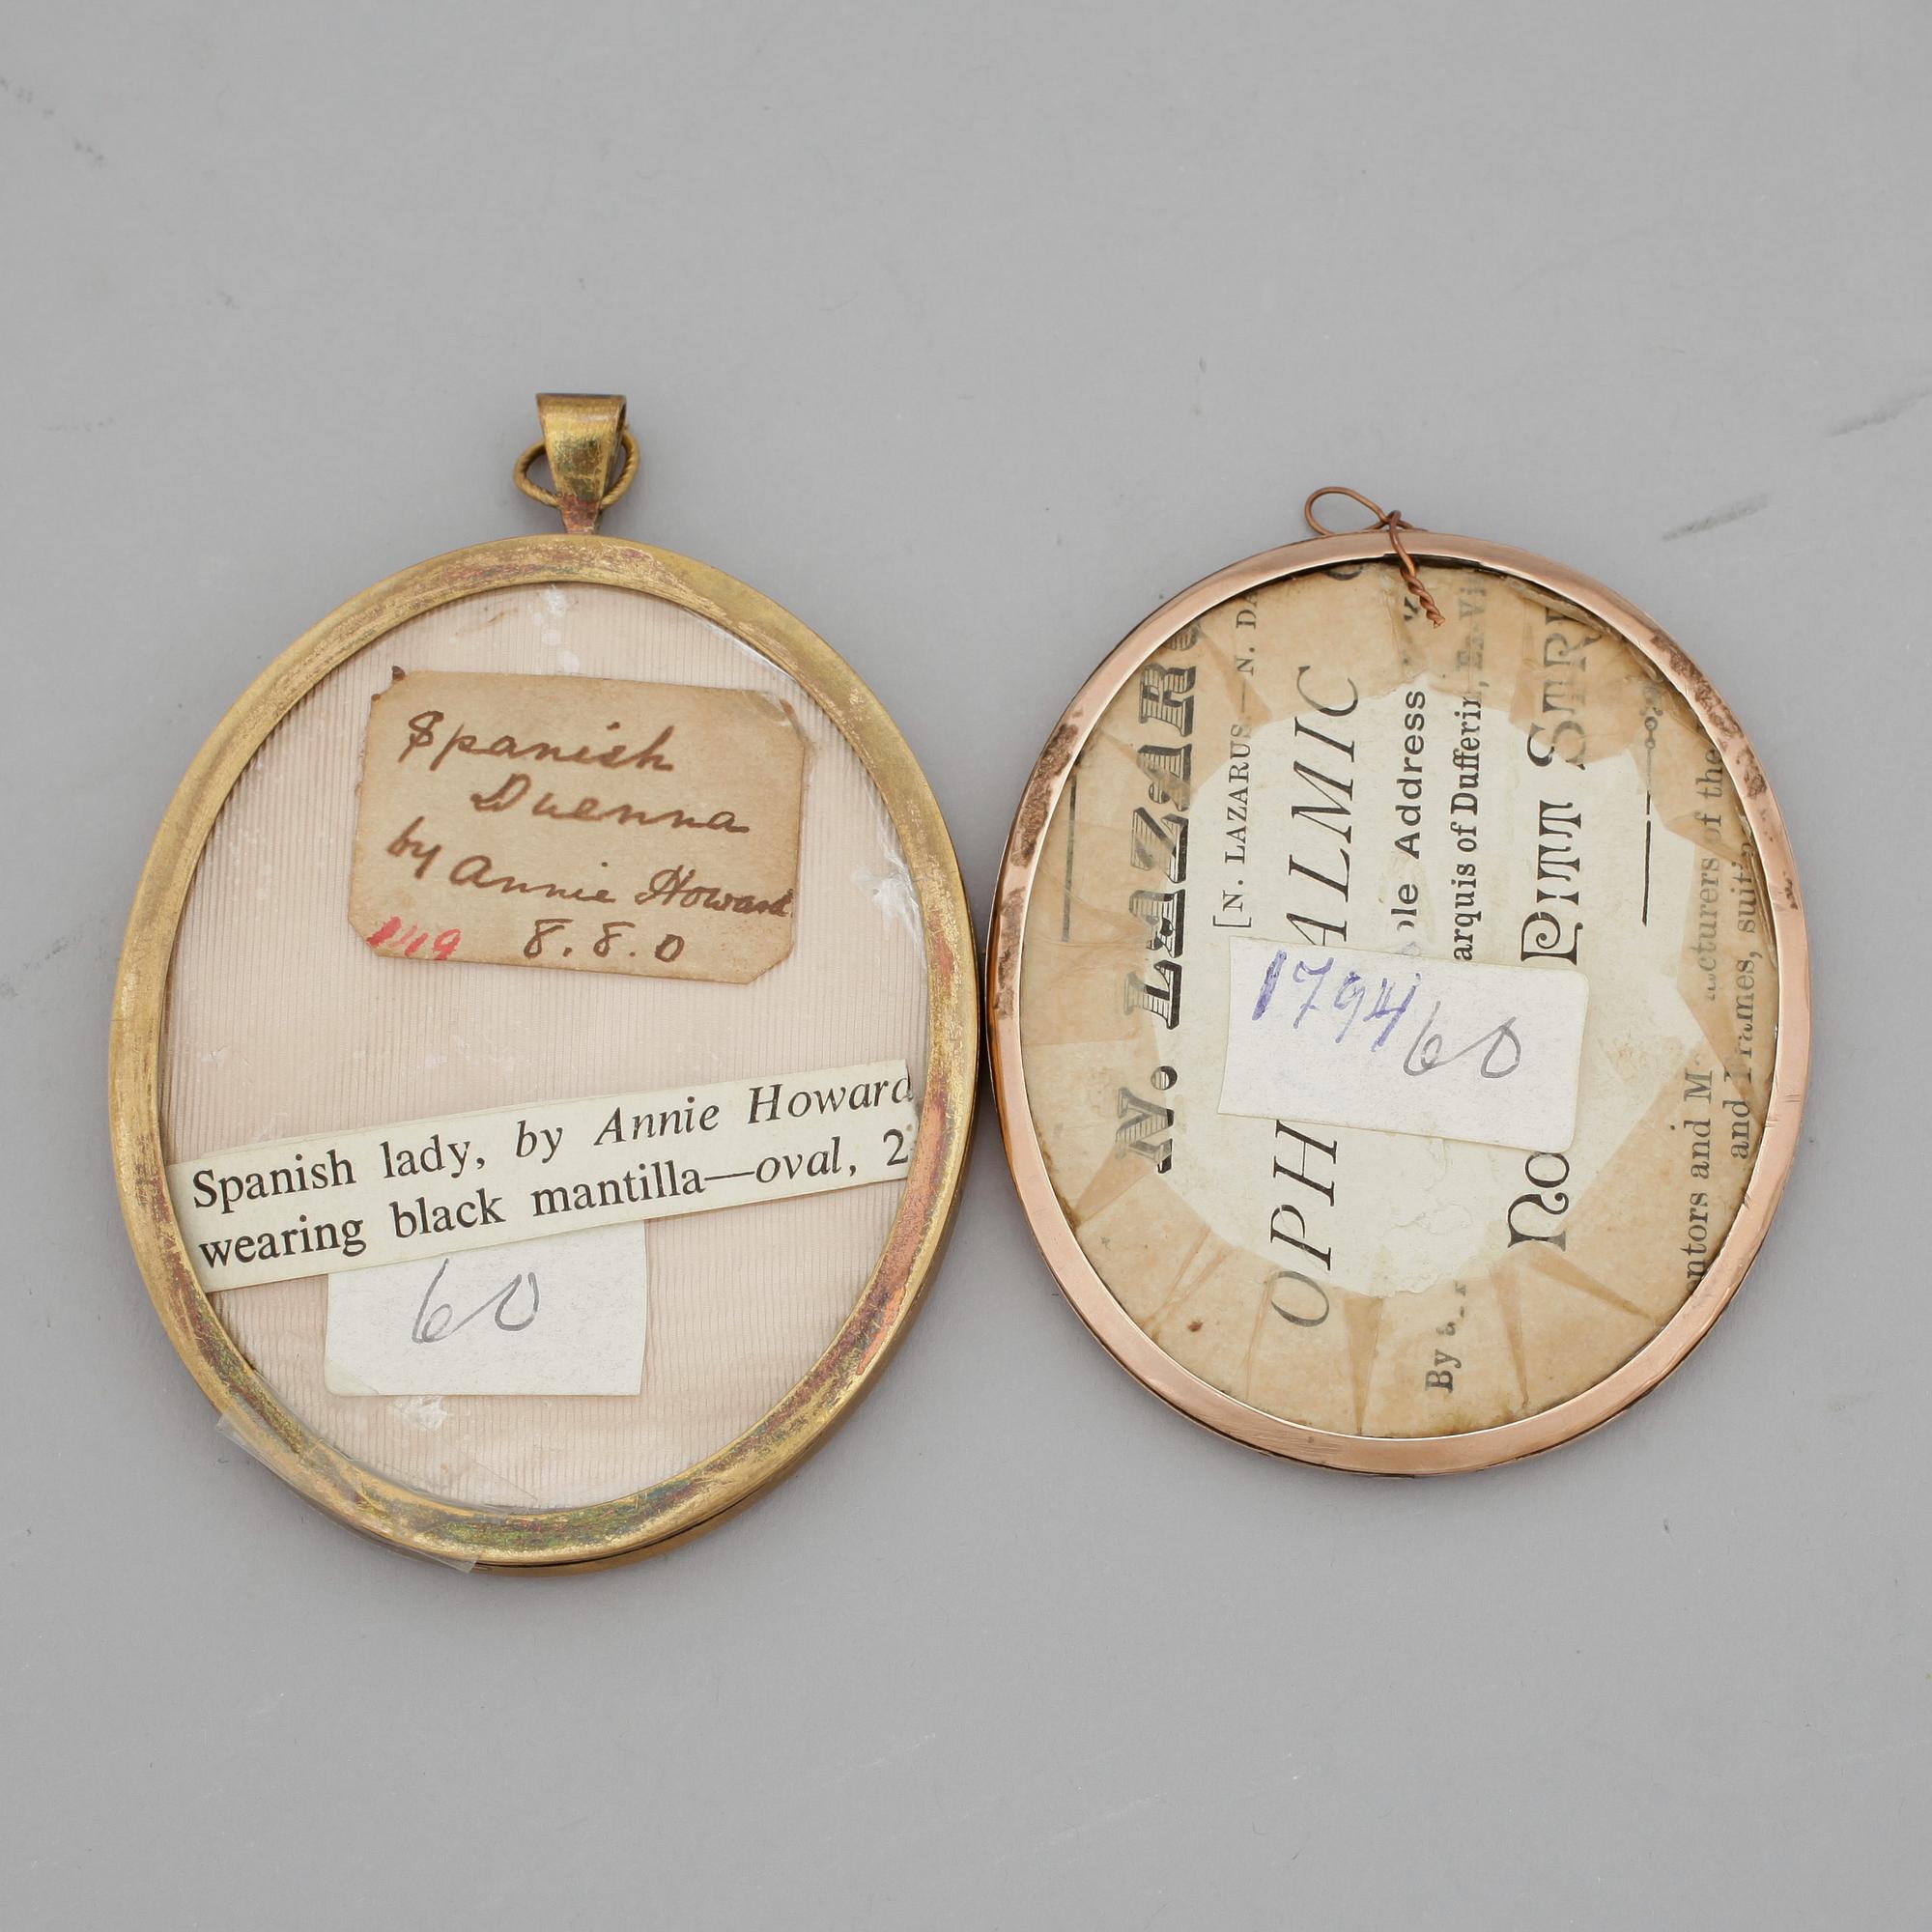 Spanish
Duenna
by Annie Howard
8.8.0
Spanish lady, by Annie Howard
wearing black mantilla—oval, 2
60
N. LAZARUS
[N. LAZARUS.—N. DA
OPH ALMIC
ble Address
By a arquis of Dufferin, Ex-Vi
No Pitt Str
entors and M acturers of the
and Frames, suit
1794
60